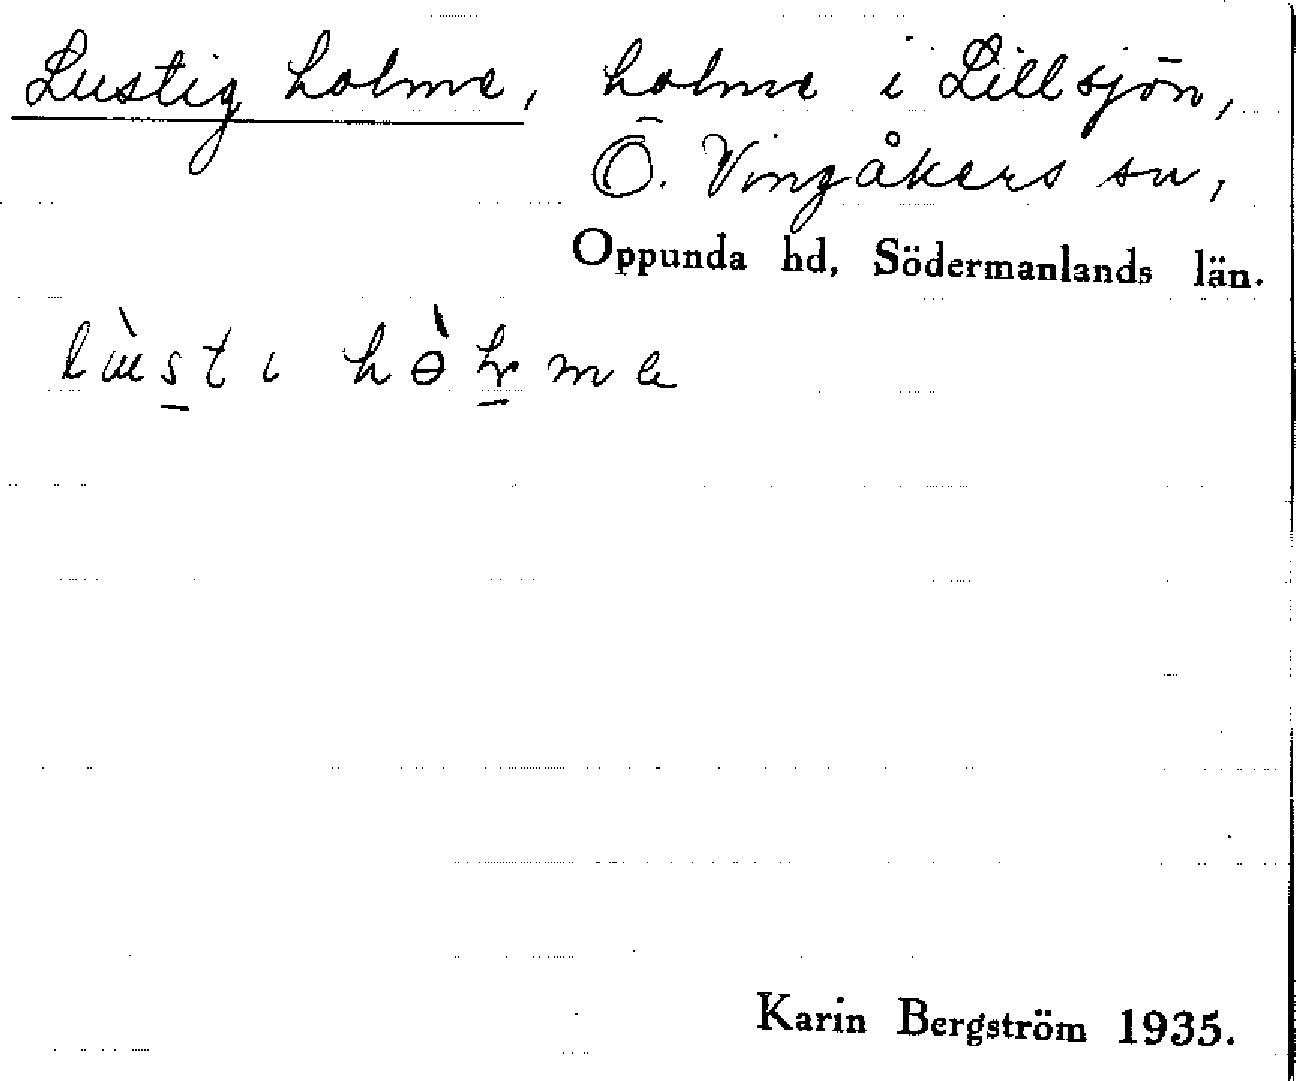 Lustig holme, holme i Lillsjön,
Ö. Vingåkers sn,
Oppunda hd, Södermanlands län.
lùsti hòḻme
Karin Bergström 1935.